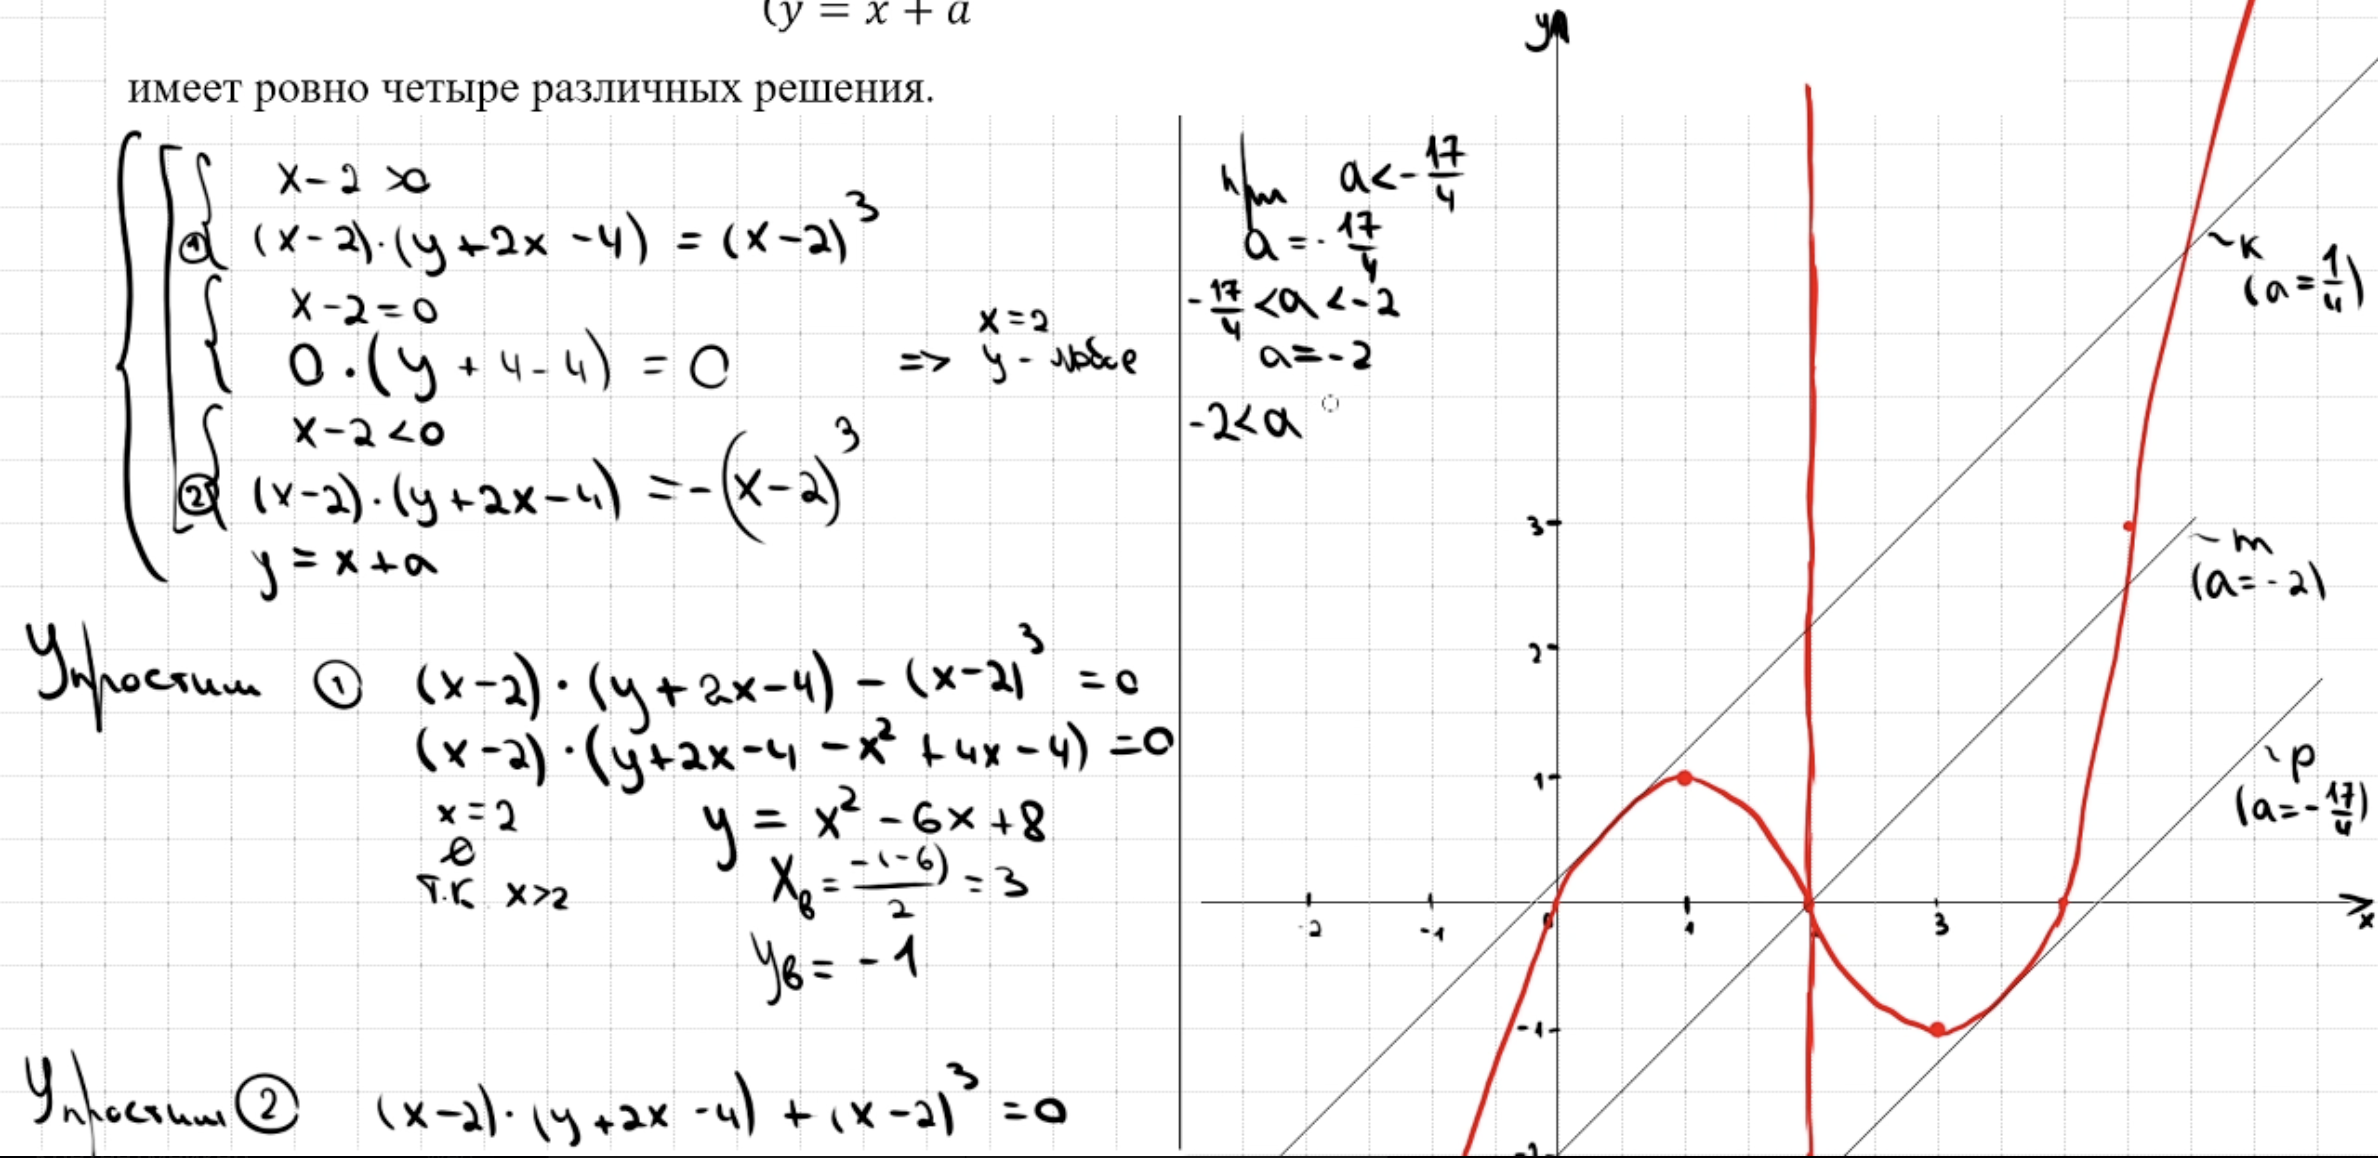 (y = x + a
имеет ровно четыре различных решения.
x - 2 > 0
① (x-2)·(y+2x-4) = (x-2)³
x - 2 = 0
0·(y+4-4) = 0 => x=2 y - любое
x - 2 < 0
② (x-2)·(y+2x-4) = -(x-2)³
y = x + a
Упростим ① (x-2)·(y+2x-4) - (x-2)³ = 0
(x-2)·(y+2x-4-x²+4x-4) = 0
x = 2 y = x² - 6x + 8
∅ xв = -(-6)/2 = 3
т.к. x>2
yв = -1
Упростим ② (x-2)·(y+2x-4) + (x-2)³ = 0
при a < -17/4
a = -17/4
-17/4 < a < -2
a = -2
-2 < a
y
3
2
1
-2 -1 0 1 3 x
-1
-2
~ к
(a = 1/4)
~ m
(a = -2)
~ p
(a = -17/4)